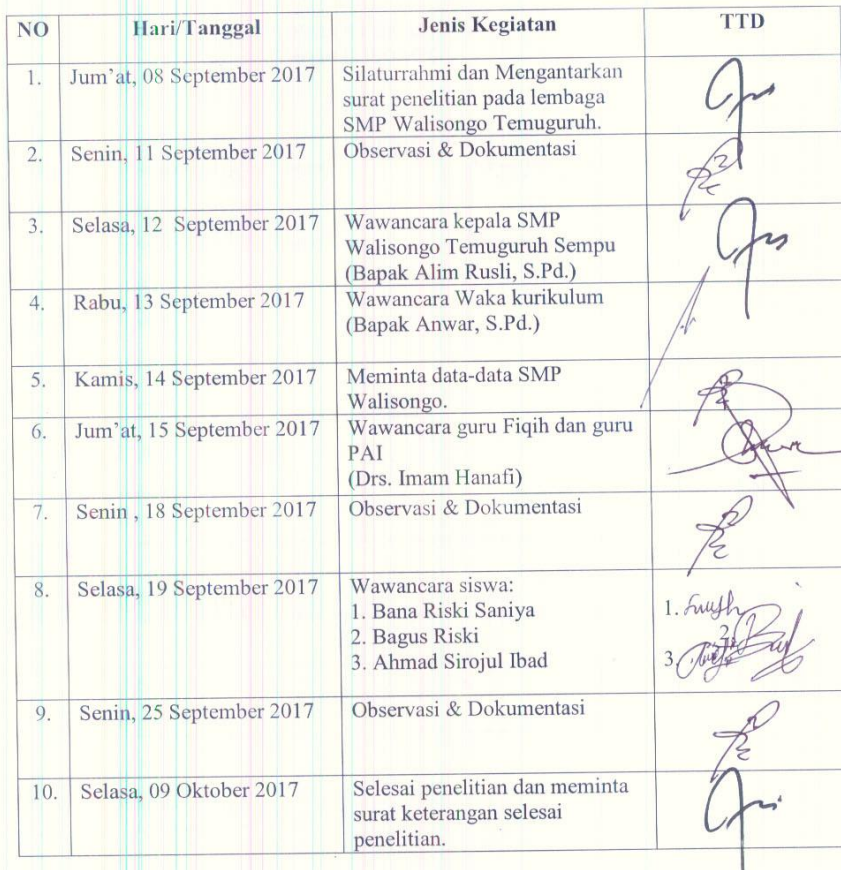 NO Hari/Tanggal Jenis Kegiatan TTD
1. Jum'at, 08 September 2017 Silaturrahmi dan Mengantarkan
surat penelitian pada lembaga
SMP Walisongo Temuguruh.
2. Senin, 11 September 2017 Observasi & Dokumentasi
3. Selasa, 12 September 2017 Wawancara kepala SMP
Walisongo Temuguruh Sempu
(Bapak Alim Rusli, S.Pd.)
4. Rabu, 13 September 2017 Wawancara Waka kurikulum
(Bapak Anwar, S.Pd.)
5. Kamis, 14 September 2017 Meminta data-data SMP
Walisongo.
6. Jum'at, 15 September 2017 Wawancara guru Fiqih dan guru
PAI
(Drs. Imam Hanafi)
7. Senin , 18 September 2017 Observasi & Dokumentasi
8. Selasa, 19 September 2017 Wawancara siswa:
1. Bana Riski Saniya 1.
2. Bagus Riski 2
3. Ahmad Sirojul Ibad 3.
9. Senin, 25 September 2017 Observasi & Dokumentasi
10. Selasa, 09 Oktober 2017 Selesai penelitian dan meminta
surat keterangan selesai
penelitian.